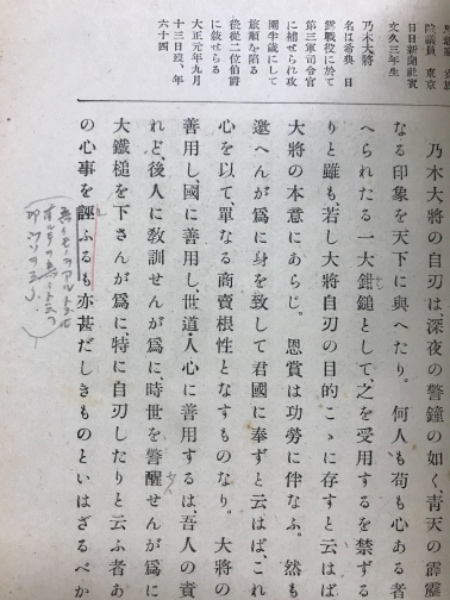 院議員 東京
日日新聞社長
文久三年生
乃木大將
名は希典 日
露戰役に於て
第三軍司令官
に補せられ攻
圍半歲にして
旅順を陷る
後從二位伯爵
に敍せらる
大正元年九月
十三日歿、年
六十四
乃木大將の自刃は、深夜の警鐘の如く、靑天の霹靂
なる印象を天下に與へたり。何人も苟も心ある者
へられたる一大鉗鎚として、之を受用するを禁ずる
りと雖も、若し大將自刃の目的こゝに存すと云はば
大將の本意にあらじ。恩賞は功勞に伴なふ。然も
邀へんが爲に身を致して君國に奉ずと云はば、これ
心を以て、單なる商賣根性となすものなり。大將の
善用し、國に善用し、世道人心に善用するは、吾人の責
れど、後人に敎訓せんが爲に、時世を警醒せんが爲に
大鐵槌を下さんが爲に、特に自刃したりと云ふ者あ
の心事を誣ふるも亦甚だしきものといはざるべか